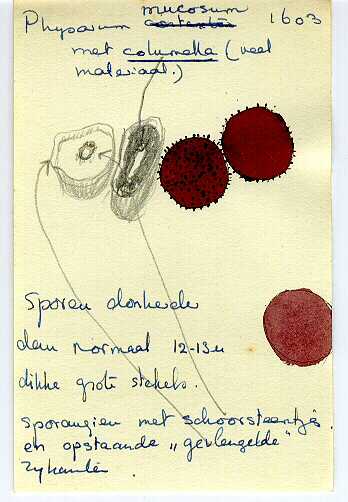 mucosum
Physarum contextum 1603
met columella (veel
materiaal.)
Sporen donkerder
dan normaal 12-13µ
dikke grote stekels.
Sporangien met schoorsteentjes
en opstaande „gevleugelde"
zijkanten